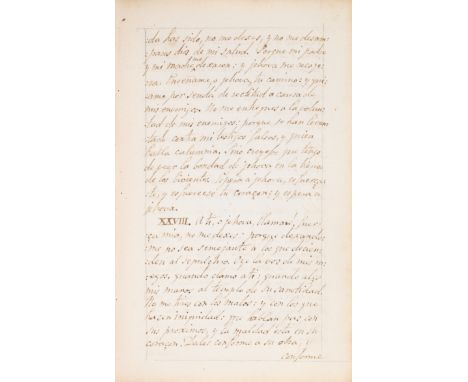 da has sido, no me dexes, y no me desam-
pares dios de mi salud. Porque mi padre
y mi madre me dexaron: y jehova me recoge-
ra. Enseñame, o jehova, tu camino: y gui-
ame por senda de rectitud a causa de
mis enemigos. No me entregues a la volun-
tad de mis enemigos: porque se han levan-
tado contra mi testigos falsos, y quien
habla calumnia. Sino creyesse que tengo
de ver la bondad de jehova en la tierra
de los bivientes. Espera a jehova, esfuerça-
te, y esfuercese tu coraçon; y espera a
jehova.
XXVIII. A ti, o jehova, llamaré, fuer-
ça mia, no me dexes: porque dexando-
me no sea semejante a los que decien-
den al sepulchro. Oye la voz de mis rue-
gos, quando clamo a ti; quando alço
mis manos al templo de su santidad.
No me tires con los malos: y con los que
hazen iniquidad: que hablan paz con
sus proximos, y la maldad está en su
coraçon. Dales conforme a su obra, y
conforme